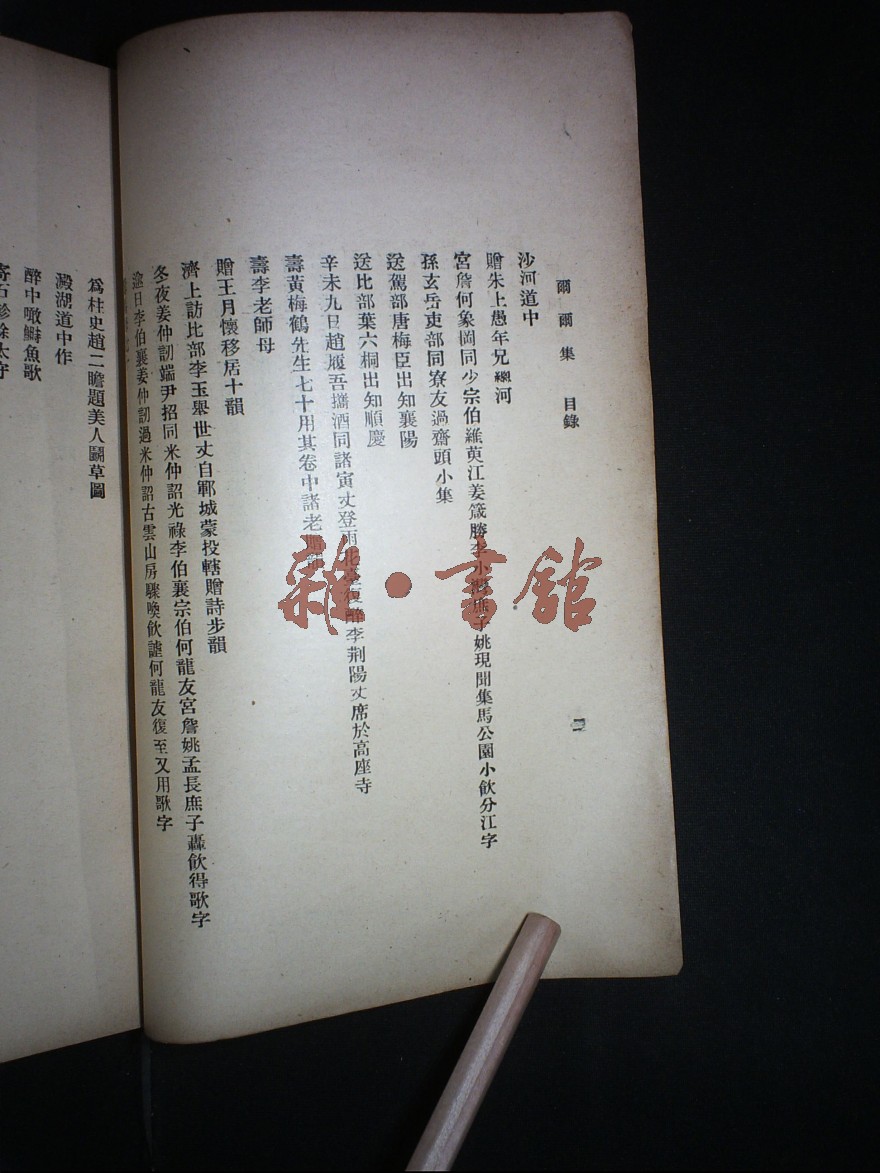 爾爾集　目錄
沙河道中
贈朱上愚年兄緫河
宮詹何象岡同少宗伯羅萸江姜箴勝李小灣庶子姚現聞集馬公園小飲分江字
孫玄岳吏部同寮友過齋頭小集
送駕部唐梅臣出知襄陽
送比部葉六桐出知順慶
辛未九日趙履吾攜酒同諸寅丈登雨花臺復醉李荆陽丈席於高座寺
壽黃梅鶴先生七十用其卷中諸老贈韻
壽李老師母
贈王月懷移居十韻
濟上訪比部李玉舉世丈自鄆城蒙投轄贈詩步韻
冬夜姜仲訒端尹招同米仲詔光祿李伯襄宗伯何龍友宮詹姚孟長庶子轟飲得歌字
逾日李伯襄姜仲訒過米仲詔古雲山房驟喚飲謔何龍友復至又用歌字
二
爲柱史趙二瞻題美人鬭草圖
澱湖道中作
醉中噉鰣魚歌
太守
雜·書館